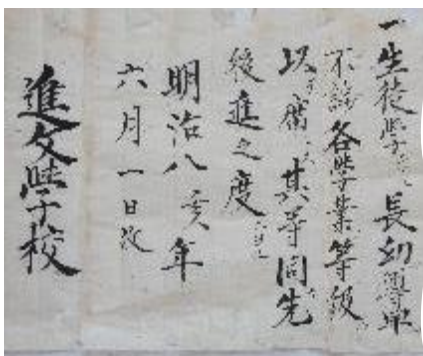 一生徒学 長幼尊卑
不論各学業等級
以 席 其等同先
後進之度
明治八亥年
六月一日改
進文学校